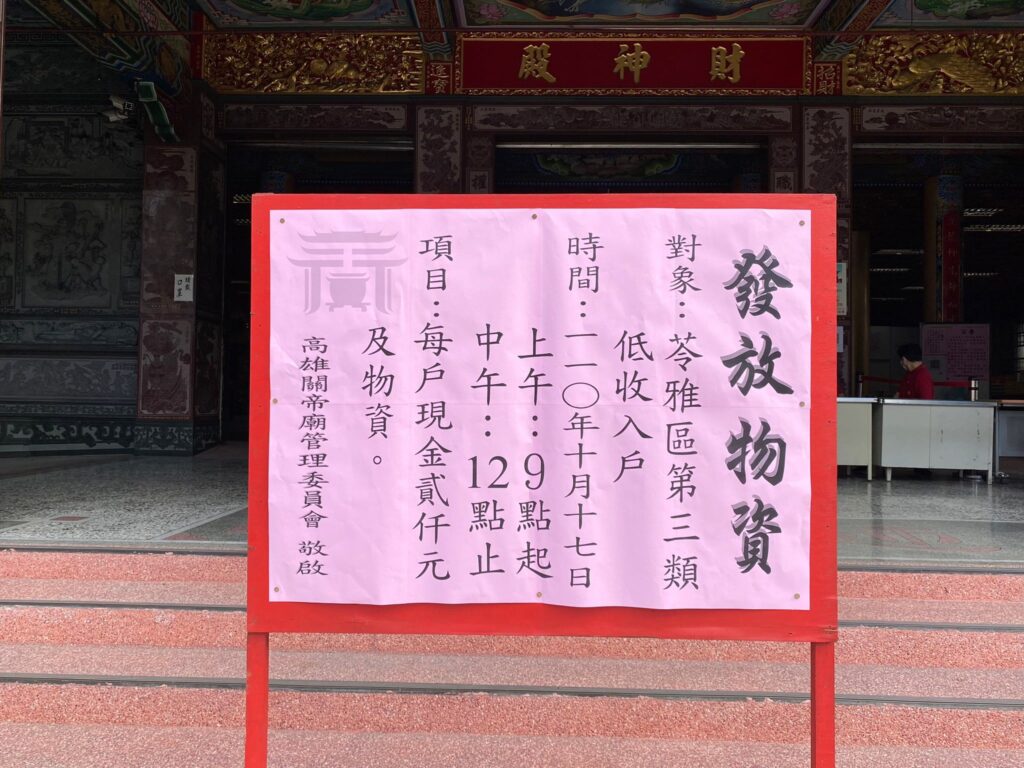 財神殿
招財
進寶
發放物資
對象：苓雅區第三類
低收入戶
時間：一一〇年十月十七日
上午：9點起
中午：12點止
項目：每戶現金貳仟元
及物資。
高雄關帝廟管理委員會 敬啟